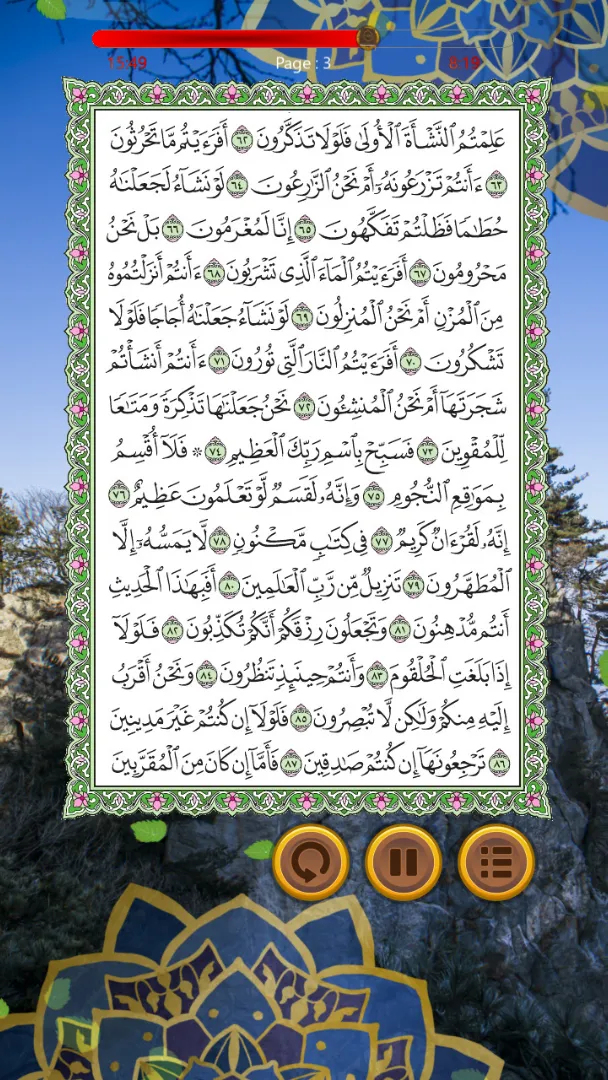 15:49
Page : 3
8:19
عَلِمْتُمُ ٱلنَّشْأَةَ ٱلْأُولَىٰ فَلَوْلَا تَذَكَّرُونَ ٦٢ أَفَرَءَيْتُم مَّا تَحْرُثُونَ
٦٣ ءَأَنتُمْ تَزْرَعُونَهُۥٓ أَمْ نَحْنُ ٱلزَّٰرِعُونَ ٦٤ لَوْ نَشَآءُ لَجَعَلْنَٰهُ
حُطَٰمًا فَظَلْتُمْ تَفَكَّهُونَ ٦٥ إِنَّا لَمُغْرَمُونَ ٦٦ بَلْ نَحْنُ
مَحْرُومُونَ ٦٧ أَفَرَءَيْتُمُ ٱلْمَآءَ ٱلَّذِى تَشْرَبُونَ ٦٨ ءَأَنتُمْ أَنزَلْتُمُوهُ
مِنَ ٱلْمُزْنِ أَمْ نَحْنُ ٱلْمُنزِلُونَ ٦٩ لَوْ نَشَآءُ جَعَلْنَٰهُ أُجَاجًا فَلَوْلَا
تَشْكُرُونَ ٧٠ أَفَرَءَيْتُمُ ٱلنَّارَ ٱلَّتِى تُورُونَ ٧١ ءَأَنتُمْ أَنشَأْتُمْ
شَجَرَتَهَآ أَمْ نَحْنُ ٱلْمُنشِـُٔونَ ٧٢ نَحْنُ جَعَلْنَٰهَا تَذْكِرَةً وَمَتَٰعًا
لِّلْمُقْوِينَ ٧٣ فَسَبِّحْ بِٱسْمِ رَبِّكَ ٱلْعَظِيمِ ٧٤ ۞ فَلَآ أُقْسِمُ
بِمَوَٰقِعِ ٱلنُّجُومِ ٧٥ وَإِنَّهُۥ لَقَسَمٌ لَّوْ تَعْلَمُونَ عَظِيمٌ ٧٦
إِنَّهُۥ لَقُرْءَانٌ كَرِيمٌ ٧٧ فِى كِتَٰبٍ مَّكْنُونٍ ٧٨ لَّا يَمَسُّهُۥٓ إِلَّا
ٱلْمُطَهَّرُونَ ٧٩ تَنزِيلٌ مِّن رَّبِّ ٱلْعَٰلَمِينَ ٨٠ أَفَبِهَٰذَا ٱلْحَدِيثِ
أَنتُم مُّدْهِنُونَ ٨١ وَتَجْعَلُونَ رِزْقَكُمْ أَنَّكُمْ تُكَذِّبُونَ ٨٢ فَلَوْلَآ
إِذَا بَلَغَتِ ٱلْحُلْقُومَ ٨٣ وَأَنتُمْ حِينَئِذٍ تَنظُرُونَ ٨٤ وَنَحْنُ أَقْرَبُ
إِلَيْهِ مِنكُمْ وَلَٰكِن لَّا تُبْصِرُونَ ٨٥ فَلَوْلَآ إِن كُنتُمْ غَيْرَ مَدِينِينَ
٨٦ تَرْجِعُونَهَآ إِن كُنتُمْ صَٰدِقِينَ ٨٧ فَأَمَّآ إِن كَانَ مِنَ ٱلْمُقَرَّبِينَ